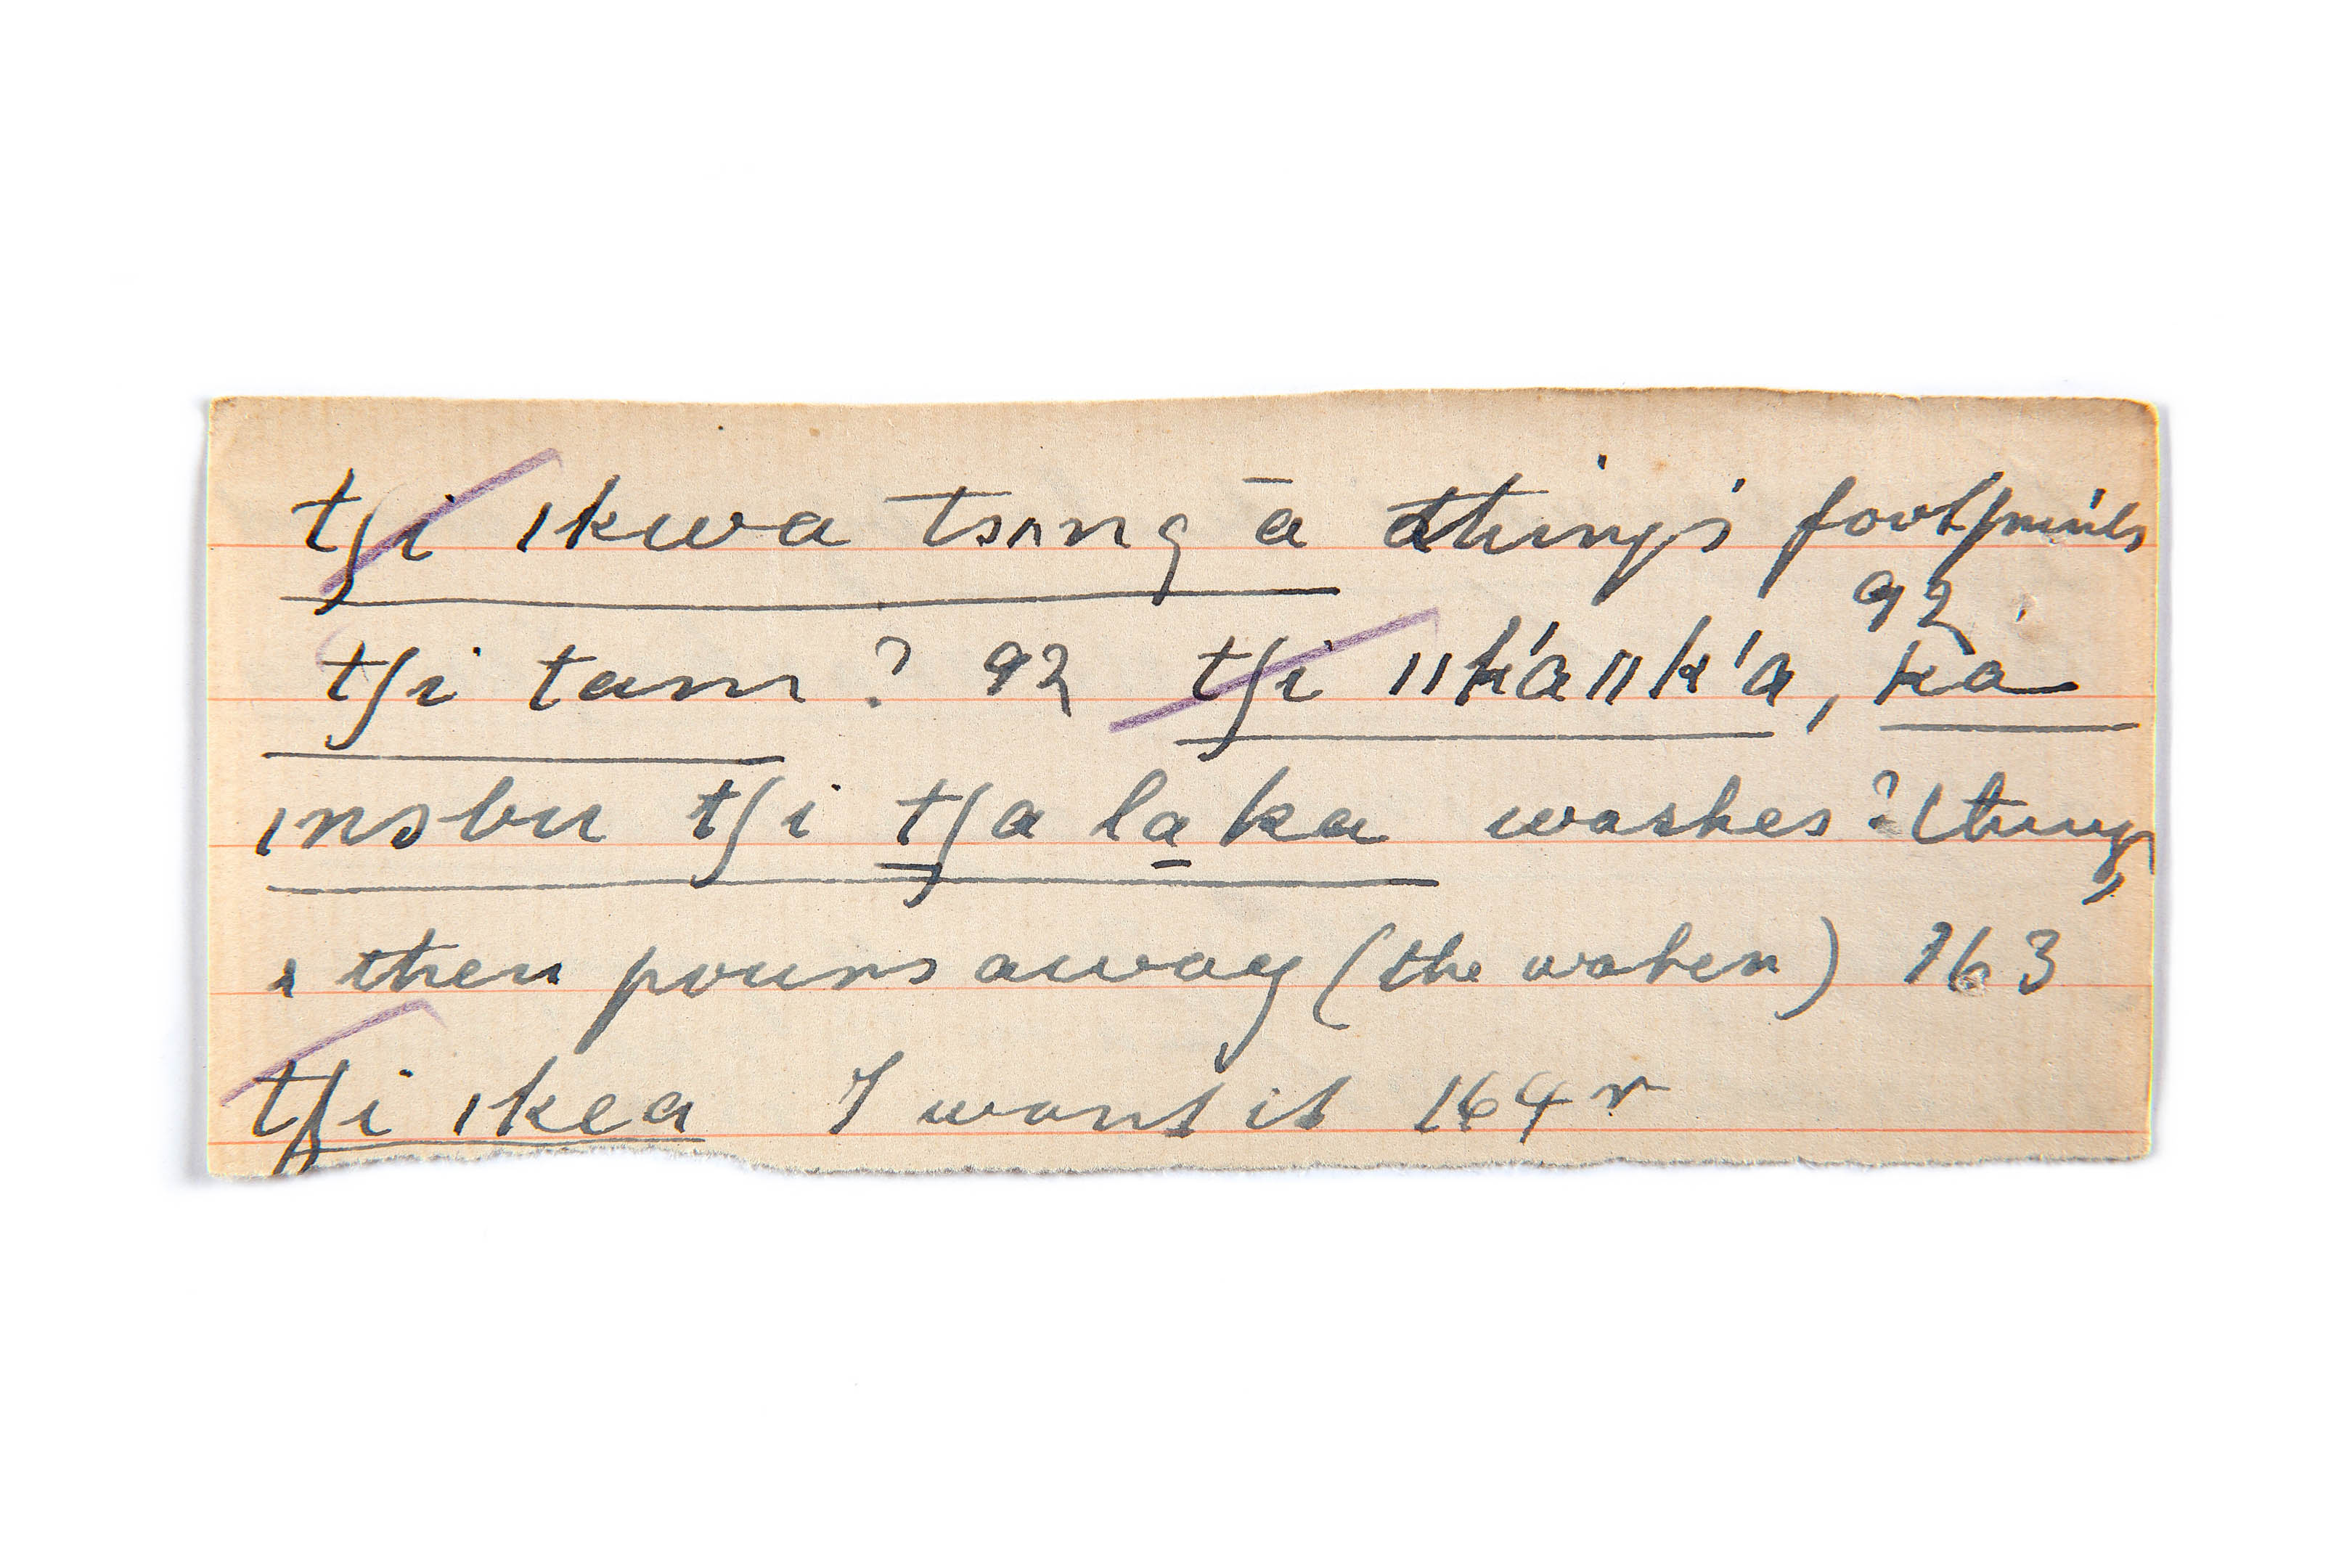 tʃi ıkwa tsʌng ā things footprints
92
tʃi tam ? 92 tʃi ǁk'aǁk'a, ka
ınɔbu tʃi tʃa la̱ka washes ? things
& then pours away (the water) 163
tʃi ıkea I want it 164 r